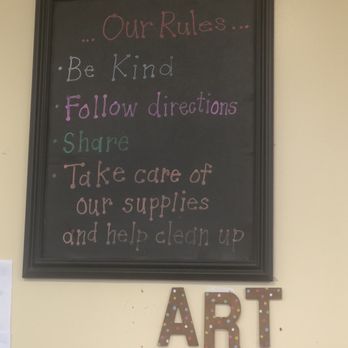 ... Our Rules...
· Be Kind
· Follow directions
· Share
· Take care of
our supplies
and help clean up
ART